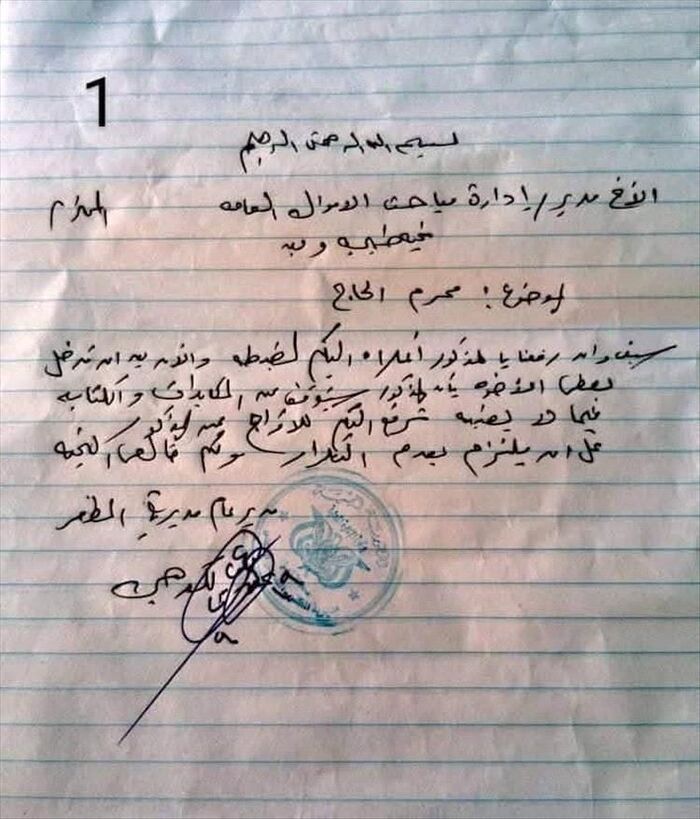 1
بسم الله الرحمن الرحيم
الأخ مدير/إدارة مباحث الاموال العامه المحترم
تحيه طيبه وبعد
الموضوع: محرم الحاج
سبق وان رفعنا بالمذكور أعلاه اليكم لضبطه والان بعد ان تدخل
بعض الأخوه بأن المذكور سيتوقف عن المكايدات والكتابه
فيما لا يعنيه نرفع اليكم للافراج عن المذكور
على ان يلتزم بعدم التكرار ولكم خالص التحيه
مدير عام مديرية المظفر